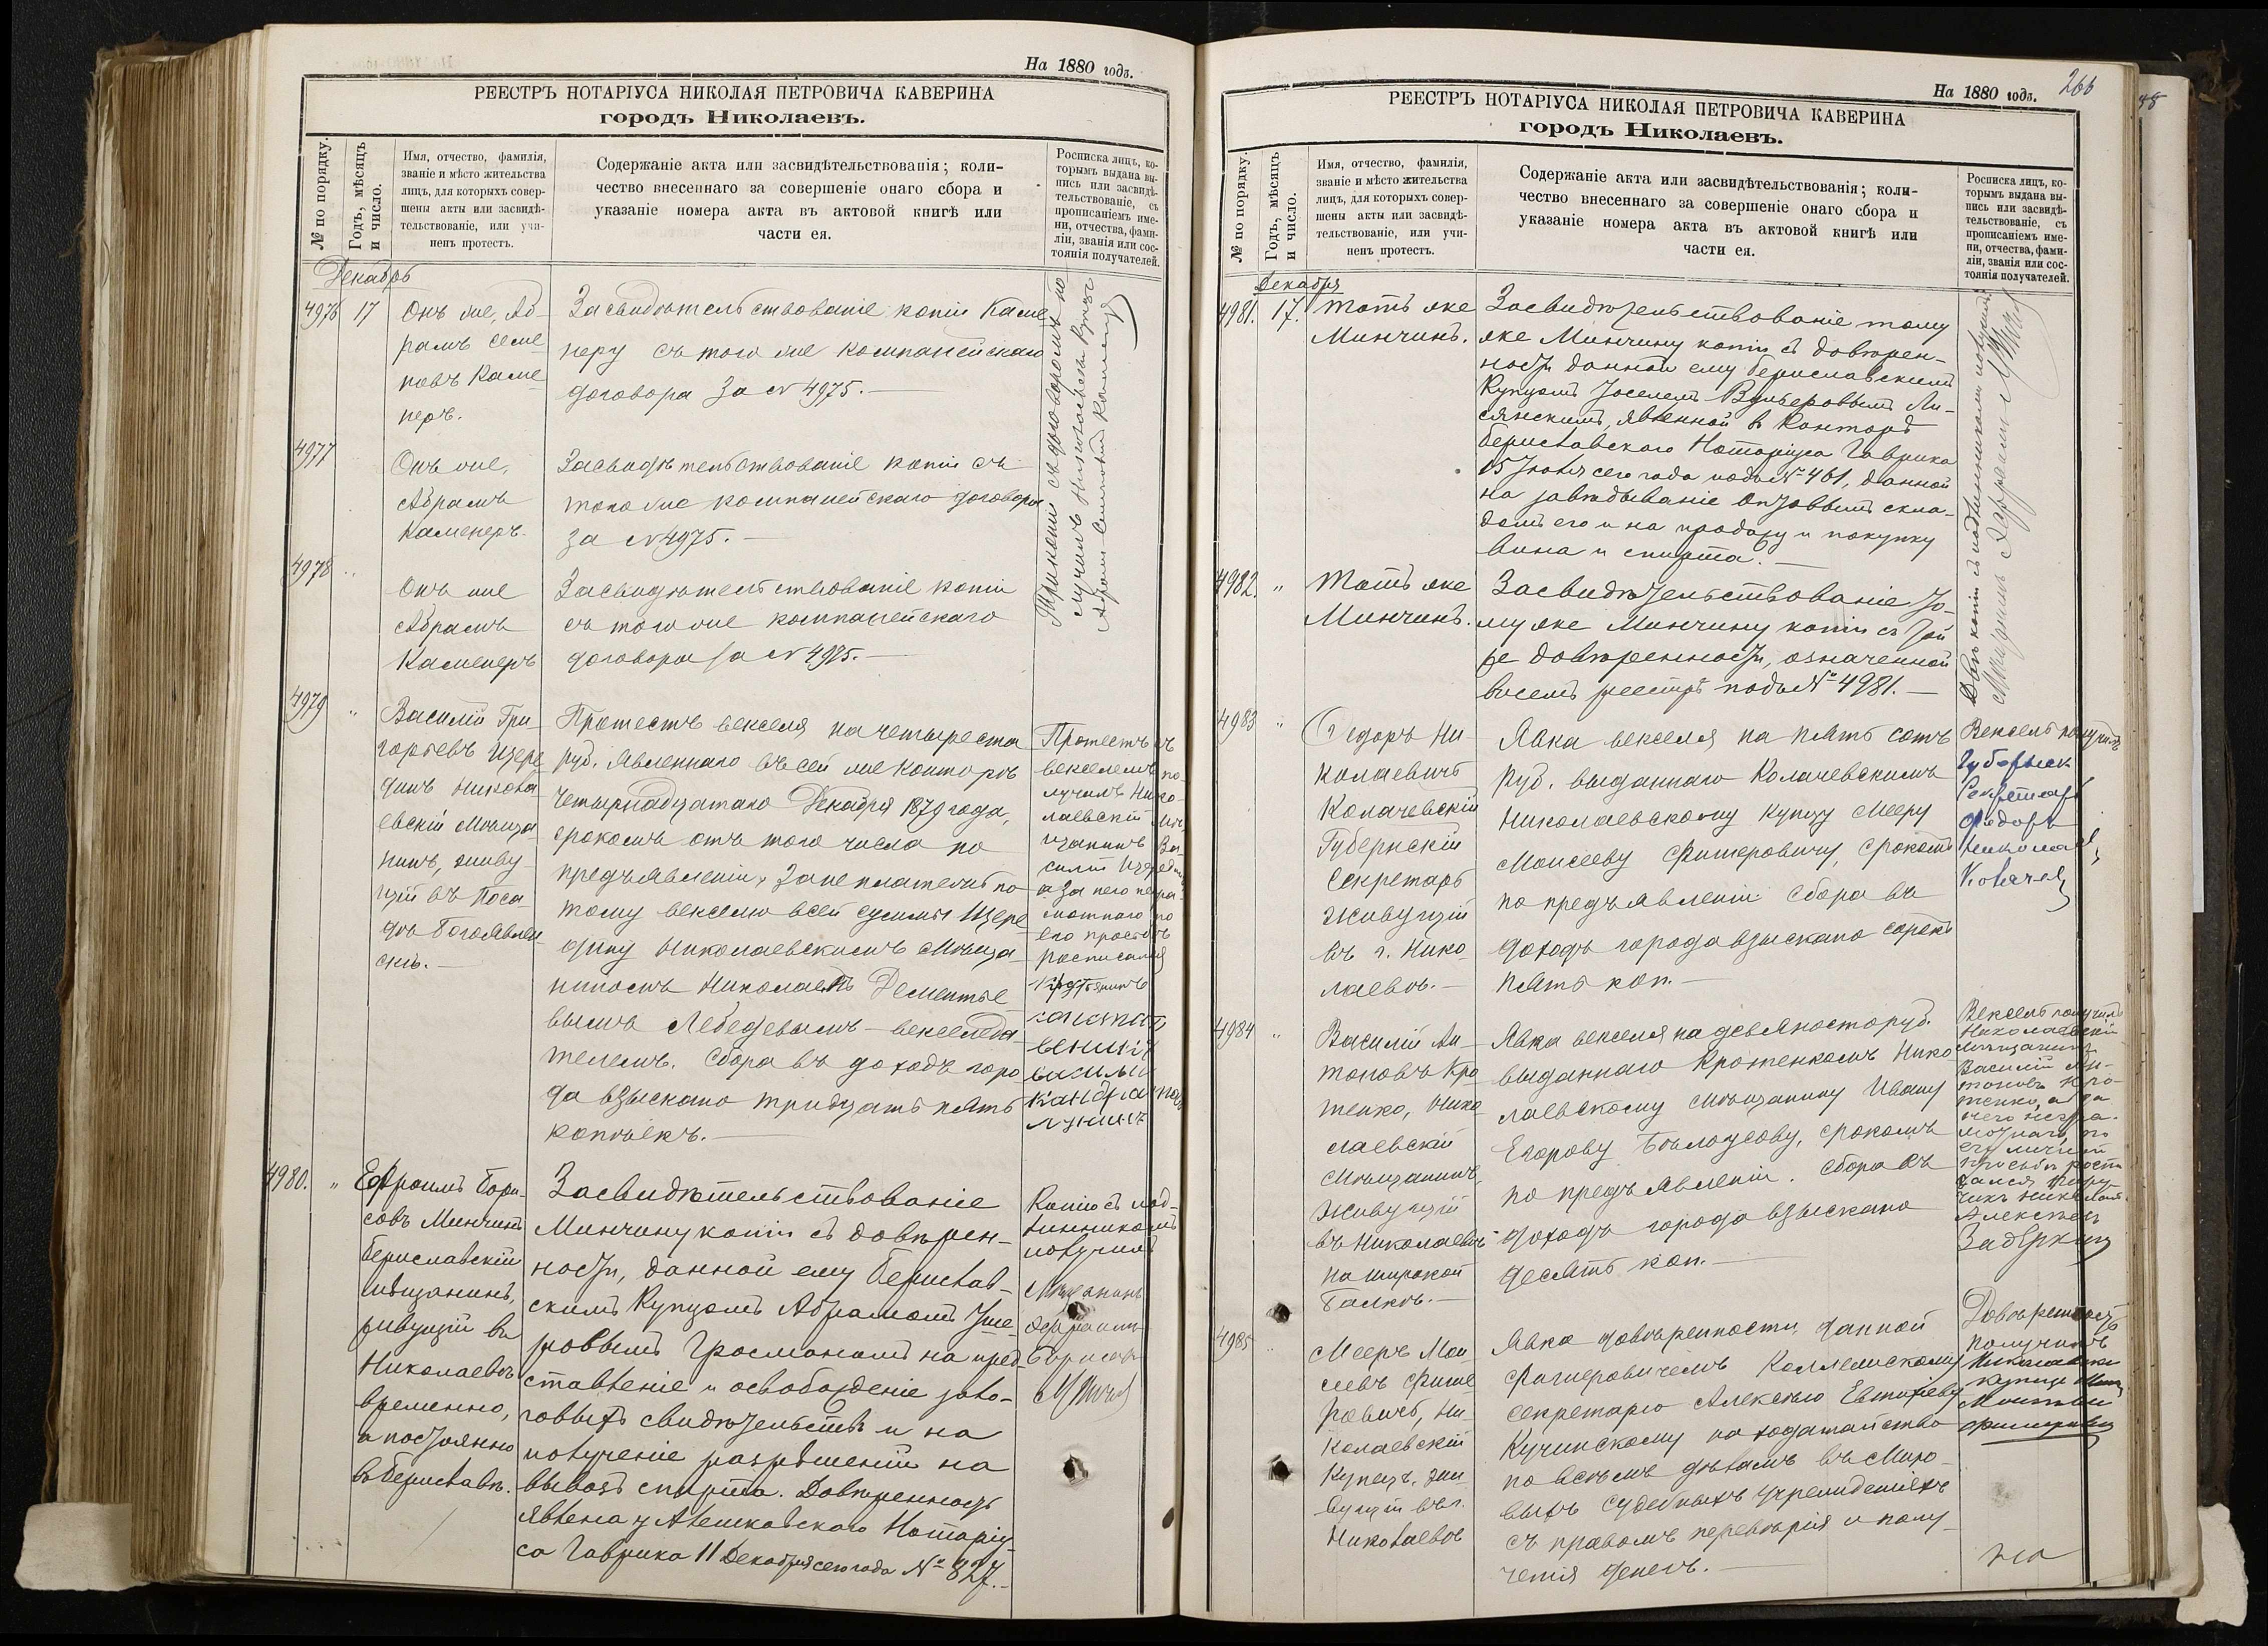 На 1880 годъ.
РЕЕСТРЪ НОТАРІУСА НИКОЛАЯ ПЕТРОВИЧА КАВЕРИНА
городъ Николаевъ.
№ по порядку.
Годъ, мѣсяцъ
и число.
Имя, отчество, фамилія,
званіе и мѣсто жительства
лицъ, для которыхъ совер-
шены акты или засвидѣ-
тельствованіе, или учи-
ненъ протестъ.
Содержаніе акта или засвидѣтельствованія; коли-
чество внесеннаго за совершеніе онаго сбора и
указаніе номера акта въ актовой книгѣ или
части ея.
Росписка лицъ, ко-
торымъ выдана вы-
пись или засвидѣ-
тельствованіе, съ
прописаніемъ име-
ни, отчества, фами-
ліи, званія или сос-
тоянія получателей.
Декабрь
4976 17
Онъ же, Аб-
рамъ Семе-
новъ Каме-
неръ.
Засвидѣтельствованіе копіи Каме
неру съ того же компанейскаго
договора за № 4975.—
4977
Онъ же,
Абрамъ
Каменеръ.
Засвидѣтельствованіе копіи съ
того же компанейскаго договора
за № 4975.—
4978 "
Онъ же
Абрамъ
Каменеръ
Засвидѣтельствованіе копіи
съ того же компанейскаго
договора за № 4975.—
Три копіи съ договоромъ по
лучилъ Николаевскій Купецъ
4979 "
Василій Гри-
горьевъ Щере
динъ Никола
евскій Мѣща-
нинъ, живу-
щій въ Поса-
дѣ Богоявлен
скѣ.—
Протестъ векселя на четыреста
руб. явленнаго въ сей же Конторѣ
Четырнадцатаго Декабря 1879 года,
срокомъ отъ того числа по
предъявленіи, за не платежъ по
тому векселю всей суммы Щере
дину Николаевскимъ Мѣща-
ниномъ Николаемъ Дементье
вымъ Лебедевымъ — векселеда-
телемъ. Сбора въ доходъ горо
да взыскано тридцать пять
копѣекъ.—
Протестъ съ
векселемъ по-
лучилъ Нико-
лаевскій Мѣ-
щанинъ Ва-
силій Щередин
а за него негра-
мотнаго по
его просьбѣ
росписался
4980. "
Ефроимъ Бори-
совъ Минчинъ
бериславскій
мѣщанинъ,
живущій въ
Николаевѣ
временно,
а постоянно
въ Бериславѣ.
Засвидѣтельствованіе
Минчину копіи съ довѣрен-
ности, данной ему берислав-
скимъ Купцомъ Абрамомъ Уше-
ровымъ Гросманомъ на пред-
ставленіе и освобожденіе зало-
говыхъ свидѣтельствъ и на
полученіе разрѣшеній на
вывозъ спирта. Довѣренность
явлена у Алешковскаго Нотаріу-
са Гаврика 11 Декабря сего года № 827.—
Копію съ под-
линникомъ
получилъ
На 1880 годъ.
266
РЕЕСТРЪ НОТАРІУСА НИКОЛАЯ ПЕТРОВИЧА КАВЕРИНА
городъ Николаевъ.
№ по порядку.
Годъ, мѣсяцъ
и число.
Имя, отчество, фамилія,
званіе и мѣсто жительства
лицъ, для которыхъ совер-
шены акты или засвидѣ-
тельствованіе, или учи-
ненъ протестъ.
Содержаніе акта или засвидѣтельствованія; коли-
чество внесеннаго за совершеніе онаго сбора и
указаніе номера акта въ актовой книгѣ или
части ея.
Росписка лицъ, ко-
торымъ выдана вы-
пись или засвидѣ-
тельствованіе, съ
прописаніемъ име-
ни, отчества, фами-
ліи, званія или сос-
тоянія получателей.
Декабря
4981. 17.
Тотъ же
Минчинъ.
Засвидѣтельствованіе тому
же Минчину копіи съ довѣрен-
ности данной ему бериславскимъ
Купцомъ Іоселемъ Вульеровымъ Ли-
сянскимъ, явленной въ Конторѣ
бериславскаго Нотаріуса Гаврика
15 Іюля сего года подъ № 461, данной
на завѣдываніе оптовымъ скла-
домъ его и на продажу и покупку
вина и спирта.—
4982. "
Тотъ же
Минчинъ.
Засвидѣтельствованіе то-
му же Минчину копіи съ той
же довѣренности, означенной
въ семъ реестрѣ подъ № 4981.—
Двѣ копіи съ подлинникомъ получилъ
4983 "
Ѳедоръ Ни-
колаевичъ
Колачевскій
Губернскій
Секретарь
Живущій
въ г. Нико-
лаевѣ.—
Явка векселя на пять сотъ
руб. выданнаго Колачевскимъ
Николаевскому Купцу Мееру
Моисееву Фишеровичу, срокомъ
по предъявленіи. Сбора въ
доходъ города взыскано сорокъ
пять коп.—
Вексель получилъ
Губернск
Секретарь
Федоръ
Николаев
4984 "
Василій Ан-
тоновъ Кро
тенко, Нико
лаевскій
Мѣщанинъ,
Живущій
въ Николаевѣ
на широкой
Балкѣ.—
Явка векселя на девяносто руб.
выданнаго Кротенкомъ Нико
лаевскому мѣщанину Ивану
Егорову Бѣлоусову, срокомъ
по предъявленіи. Сбора въ
доходъ города взыскано
десять коп.—
Вексель получилъ
Николаевскій
Мѣщанинъ
Василій Ан-
тоновъ Кро-
тенко, а за
него негра-
мотнаго по
его личной
просьбѣ роспи
4985 "
Мееръ Мои
сеевъ Фише
ровичъ, Ни-
колаевскій
Купецъ, жи
вущій въ г.
Николаевѣ
Явка довѣренности, данной
Фишеровичемъ Коллежскому
секретарю Алексѣю Евтихіеву
Кучинскому на ходатайство
по всѣмъ дѣламъ въ Миро-
выхъ судебныхъ учрежденіяхъ
съ правомъ перевѣрія и полу-
ченія денегъ.—
Довѣренность
получилъ